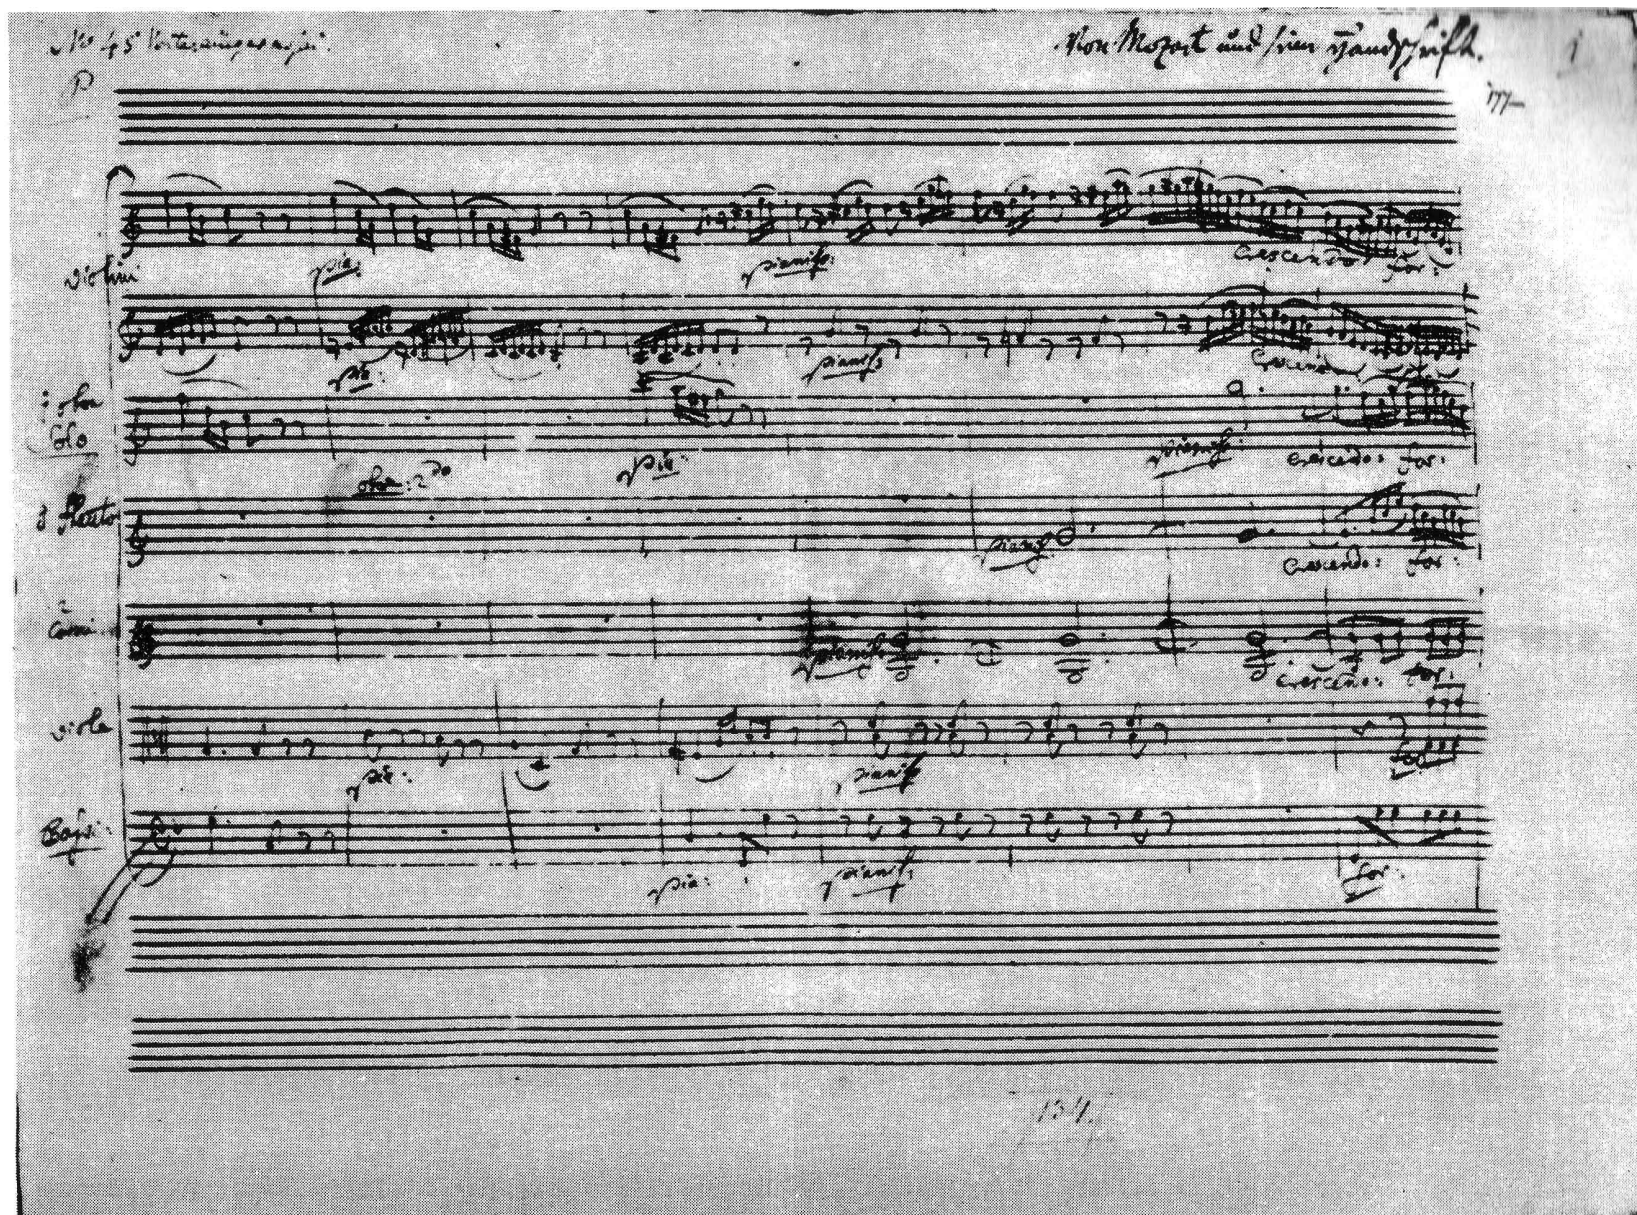 Von Mozart und seine Handschrift. 1
Violini
pia: pianiss:
crescendo for:
pia: pianiss:
crescendo
Solo
pia: pianiss: crescendo: for:
oboe: 2do
Flauto
pianiss: crescendo: for:
2
Corni
pianiss: crescendo: for:
viola
pia: pianiss: for:
Bassi:
pia: pianiss: for:
134.